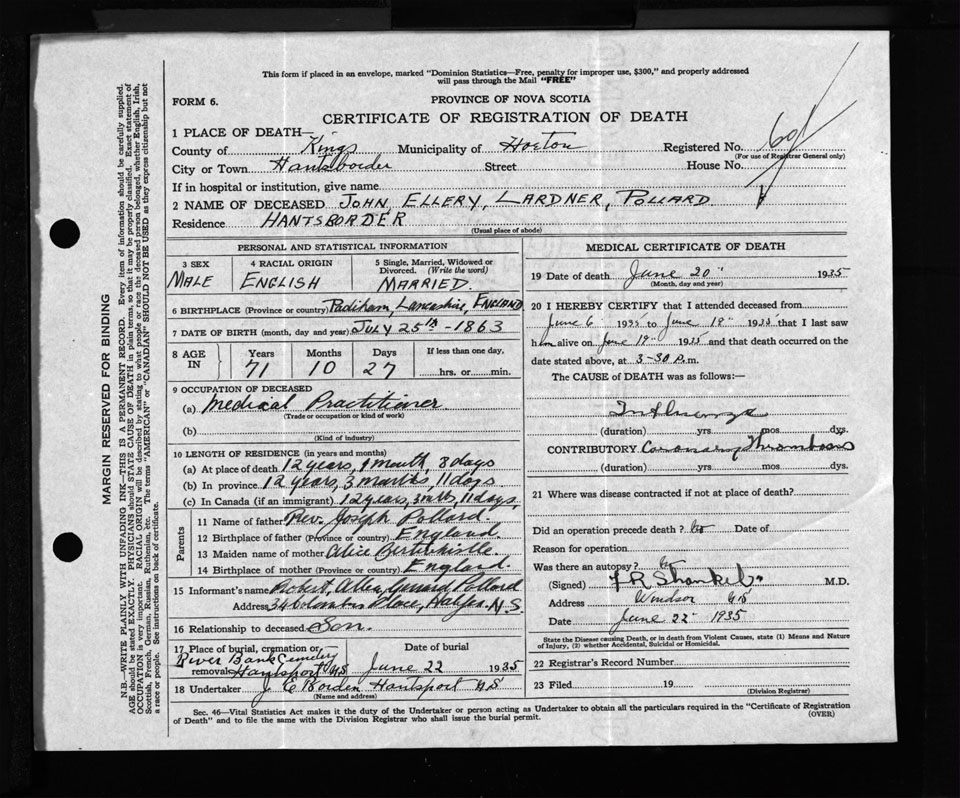 This form if placed in an envelope, marked "Dominion Statistics—Free, penalty for improper use, $300," and properly addressed
will pass through the Mail "FREE"
FORM 6.
PROVINCE OF NOVA SCOTIA
CERTIFICATE OF REGISTRATION OF DEATH
1 PLACE OF DEATH—
County of Kings Municipality of Horton Registered No.
(For use of Registrar General only)
City or Town Hantsborder Street House No.
If in hospital or institution, give name
2 NAME OF DECEASED JOHN, ELLERY, LARDNER, POLLARD
Residence HANTSBORDER
(Usual place of abode)
PERSONAL AND STATISTICAL INFORMATION
3 SEX
MALE
4 RACIAL ORIGIN
ENGLISH
5 Single, Married, Widowed or
Divorced. (Write the word)
MARRIED.
6 BIRTHPLACE (Province or country) Padiham, Lancashire, ENGLAND
7 DATE OF BIRTH (month, day and year) JULY 25th - 1863
8 AGE
IN
Years Months Days If less than one day,
71 10 27 hrs. or min.
9 OCCUPATION OF DECEASED
(a) Medical Practitioner
(Trade or occupation or kind of work)
(b)
(Kind of industry)
10 LENGTH OF RESIDENCE (in years and months)
(a) At place of death 12 years, 1 month, 8 days
(b) In province 12 years, 3 months, 11 days
(c) In Canada (if an immigrant) 12 years, 3 mths, 11 days,
Parents
11 Name of father Rev. Joseph Pollard.
12 Birthplace of father (Province or country) England.
13 Maiden name of mother Alice Birtwhistle.
14 Birthplace of mother (Province or country) England.
15 Informant's name Robert, Allen, Pollard
Address 34 Place, Halifax. N.S.
16 Relationship to deceased Son.
17 Place of burial, cremation or removal River Bank Cemetery
Hantsport NS
Date of burial
June 22 1935
18 Undertaker J C Borden Hantsport NS
(Name and address)
MEDICAL CERTIFICATE OF DEATH
19 Date of death June 20" 1935
(Month, day and year)
20 I HEREBY CERTIFY that I attended deceased from
June 6 1935 to June 19" 1935 that I last saw
him alive on June 19" 1935 and that death occurred on the
date stated above, at 3-30 P.m.
The CAUSE of DEATH was as follows:—
Influenza
(duration) yrs. mos. dys.
CONTRIBUTORY Coronary Thrombosis
(duration) yrs. mos. dys.
21 Where was disease contracted if not at place of death?
Did an operation precede death? No Date of
Reason for operation
Was there an autopsy? No
(Signed) F R Shankel M.D.
Address Windsor NS
Date June 22" 1935
State the Disease causing Death, or in death from Violent Causes, state (1) Means and Nature
of Injury, (2) whether Accidental, Suicidal or Homicidal.
22 Registrar's Record Number
23 Filed 19
(Division Registrar)
Sec. 46—Vital Statistics Act makes it the duty of the Undertaker or person acting as Undertaker to obtain all the particulars required in the "Certificate of Registration
of Death" and to file the same with the Division Registrar who shall issue the burial permit.
(OVER)
MARGIN RESERVED FOR BINDING
N.B.—WRITE PLAINLY WITH UNFADING INK—THIS IS A PERMANENT RECORD. Every item of information should be carefully supplied.
AGE should be stated EXACTLY. PHYSICIANS should STATE CAUSE OF DEATH in plain terms, so that it may be properly classified. Exact statement of
OCCUPATION is very important. RACIAL ORIGIN will be described by stating to what people or race the deceased person belonged, whether English, Irish,
Scottish, French, German, Russian, Ruthenian, etc. The terms "AMERICAN" or "CANADIAN" SHOULD NOT BE USED as they express citizenship but not
a race or people. See instructions on back of certificate.